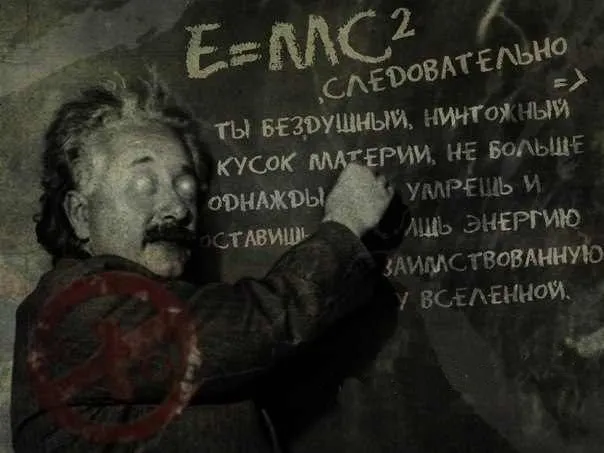 E=MC²
,СЛЕДОВАТЕЛЬНО
=>
ТЫ БЕЗДУШНЫЙ, НИЧТОЖНЫЙ
КУСОК МАТЕРИИ, НЕ БОЛЬШЕ
ОДНАЖДЫ УМРЕШЬ И
ОСТАВИШЬ ЛИШЬ ЭНЕРГИЮ
ЗАИМСТВОВАННУЮ
У ВСЕЛЕННОЙ.